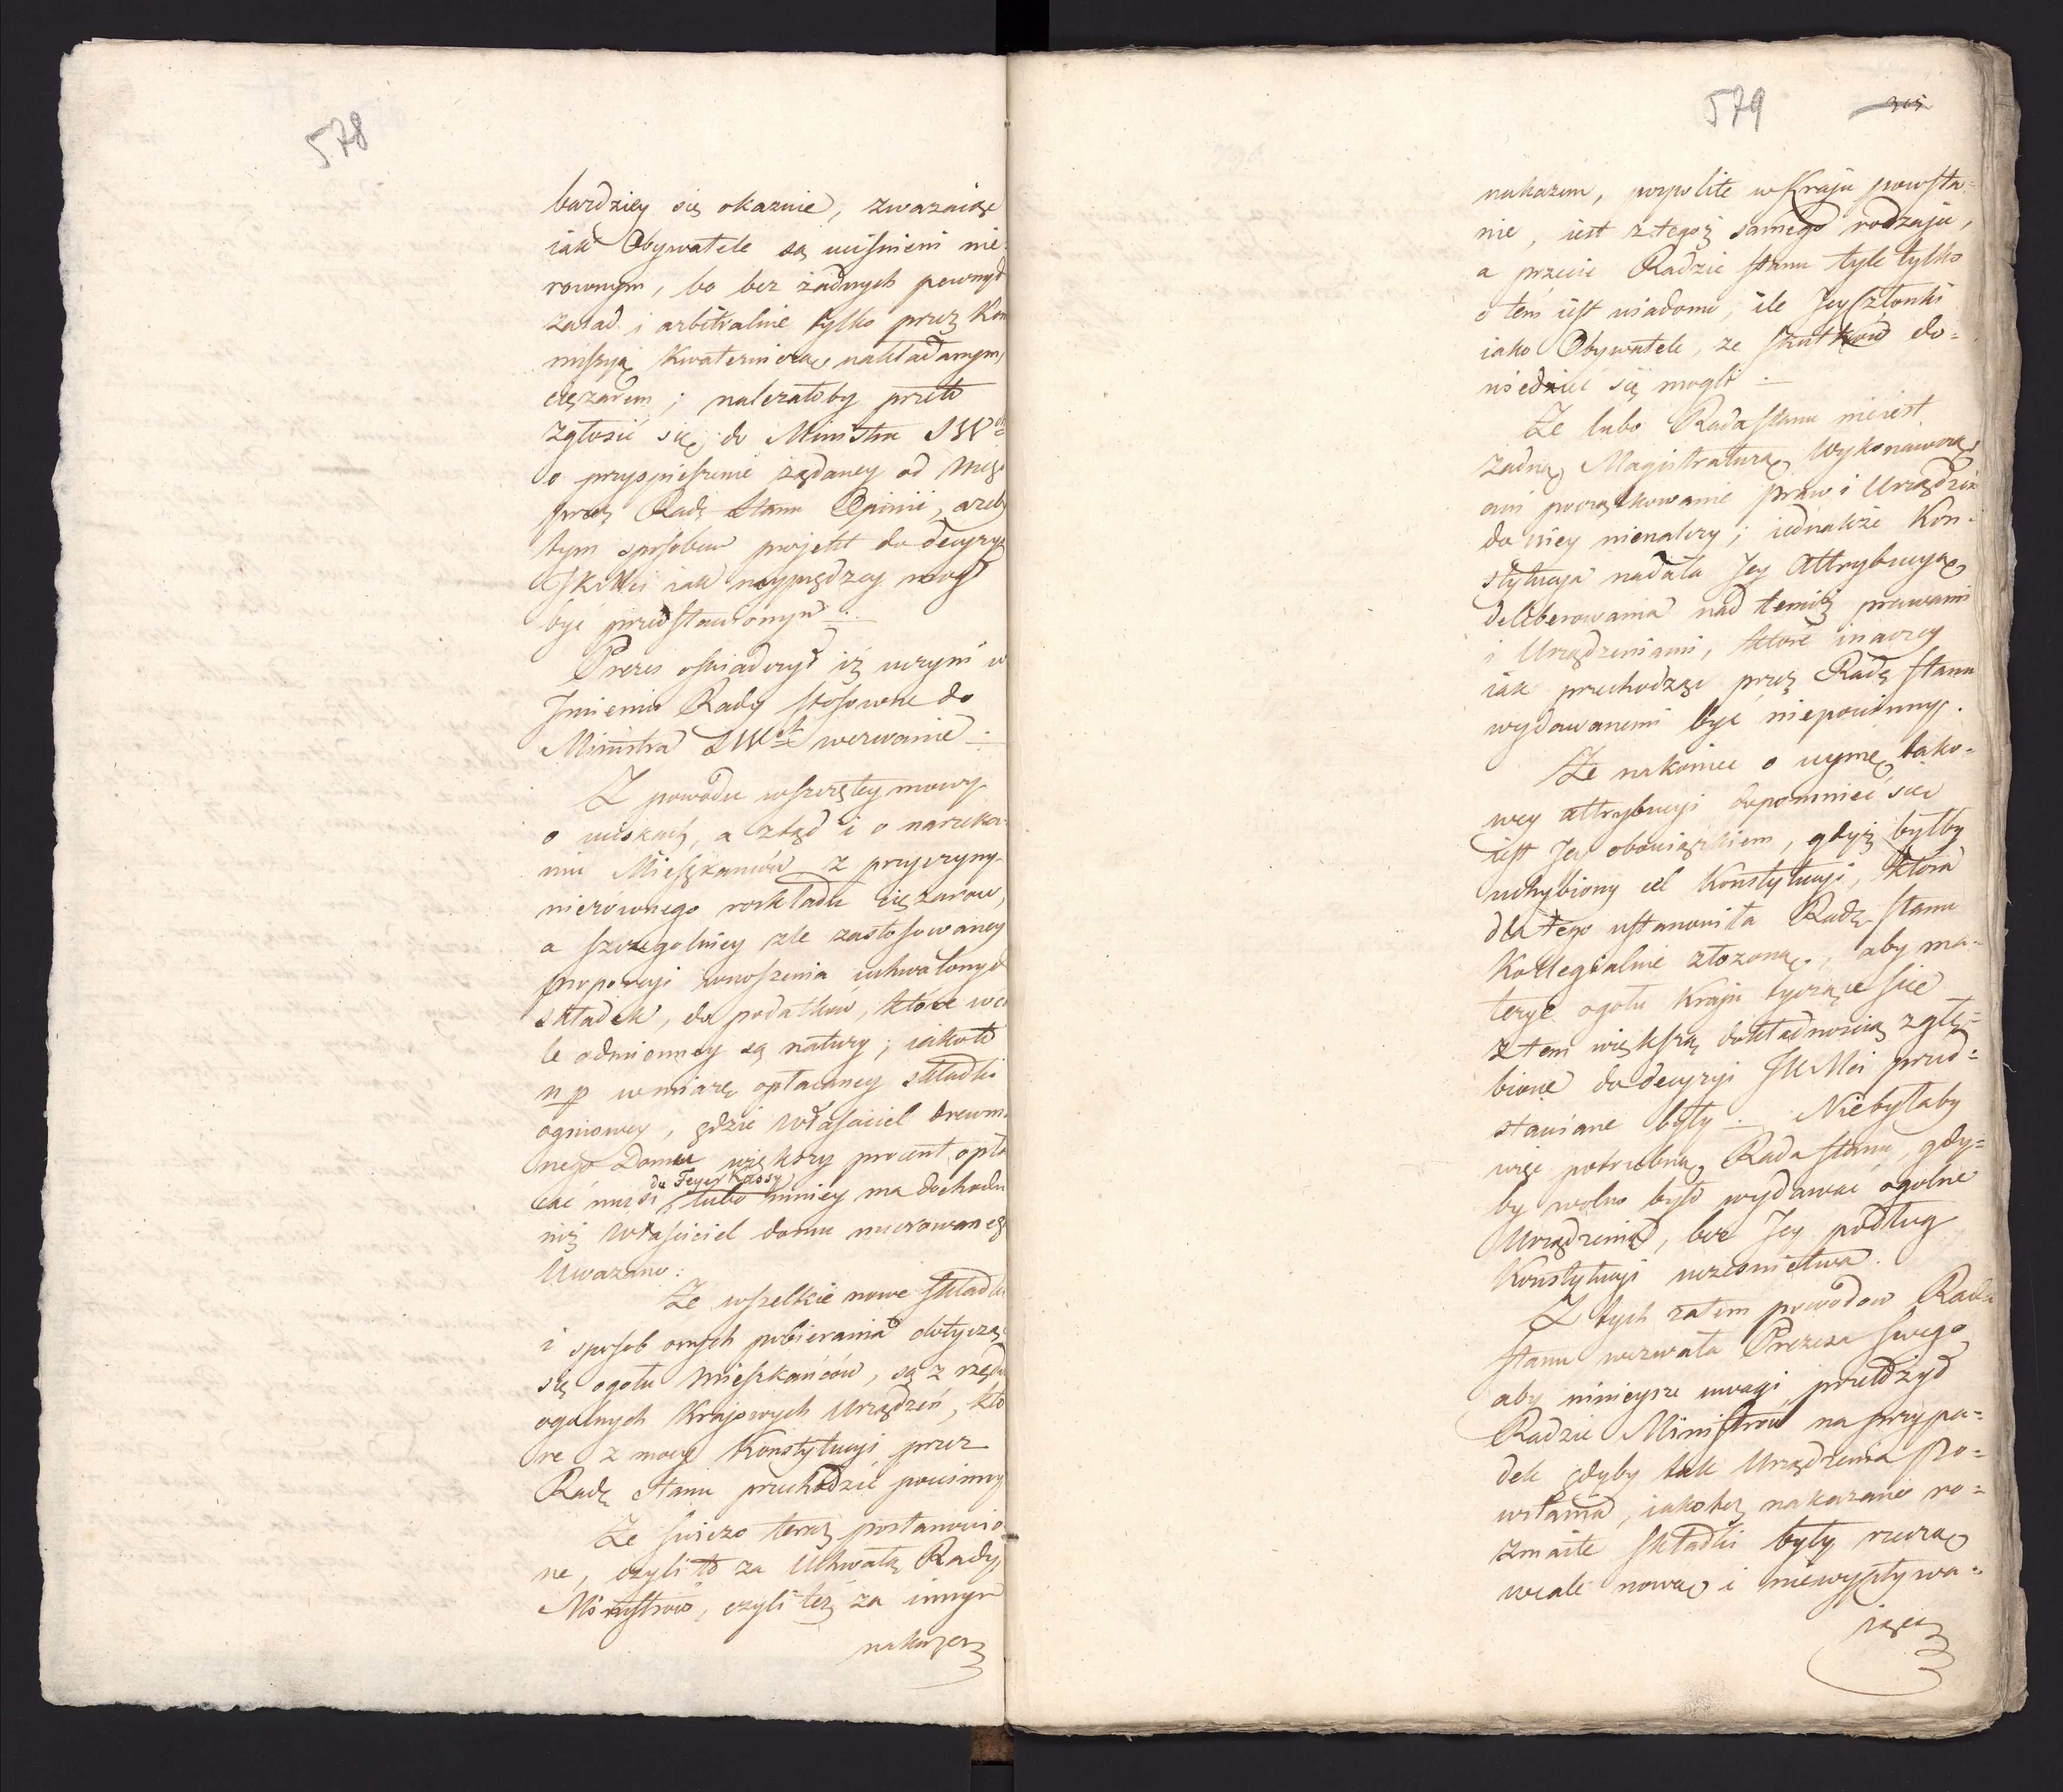 578
bardziey się okazuie, zważaiąc
iak Obywatele są uciśnieni nie-
rownym, bo bez żadnych pewnych
zasad i arbitralnie tylko przez Kom
missyją Kwaterniczą nakładanym
ciężarem; należałoby przeto
zgłosić się do Ministra SW
o przyspieszenie żądaney od niego
przez Radę Stanu Opinii, azeby
tym sposobem projekt do decyzyi
JKMci iak nayprędzey mogł
być przedstawionym.
Prezes oswiadczył iż uczyni w
Jmieniu Rady stosowne do
Ministra SW wezwanie.
Z powodu wszczętey mowy
o uciskach, a ztąd i o narzeka-
niu Mieszkańców z przyczyny
nierównego rozkładu ciężarow,
a szczegolniey źle zastosowaney
proporcyi wnoszenia uchwalonych
składek, do podatkow, które wca
le odmienney są natury; iakoto
np w miarę opłacaney składki
ogniowey, gdzie Właściciel drewnia
nego Domu większy procent opła
do Feyerkassy
cać musi lubo mniey ma dochodu
niż Właściciel domu murowanego
Uważano:
Że wszelkie nowe składki
i sposob onych pobierania dotyczące
się ogołu Mieszkańców, są z rzędu
ogolnych Krajowych Urządzeń, któ
re z mocy Konstytucyi przez
Radę Stanu przechodzić powinny
Że swieżo teraz postanowio-
ne, czyli to za Uchwałą Rady
Ministrów, czyli też za innym
nakazem
579
305
nakazem, pospolite w Kraju powsta-
nie, iest z tegoż samego rodzaju,
a przecie Radzie stanu tyle tylko
o tem iest wiadomo, ile Jey Członki
iako Obywatele, ze skutków do-
wiedzieć się mogli.
Że lubo Rada stanu nie iest
żadną Magistraturą Wykonawczą
ani początkowanie praw i Urządzeń
do niey nienależy; iednakże Kon-
stytucja nadała Jey Attrybucyą
deliberowania nad temiż prawami
i Urządzeniami, które inaczey
iak przechodząc przez Radę stanu
wydawanemi być niepowinny.
Że nakoniec o uymę tako-
wey attrybucyi dopomnieć się
iest Jey obowiązkiem, gdyż byłby
uchybiony cel Konstytucyi, która
dla tego ustanowiła Radę stanu
Kollegialnie złożoną, aby ma-
terye ogołu Kraju tyczące się
z tem większą dokładnością zgłę-
bione do decyzyi JKMci przed-
stawiane były. Niebyłaby
więc potrzebną Rada stanu, gdy-
by wolno było wydawać ogolne
Urządzenia, bez Jey podług
Konstytucyi uczesnictwa.
Z tych zatem powodow Rada
stanu wezwała Prezesa swego
aby ninieysze uwagi przełożył
Radzie Ministrów na przypa-
dek gdyby tak Urządzenia po-
wstania, iakoteż nakazane ro-
zmaite składki były rzeczą
wcale nową i niewypływa-
iącą